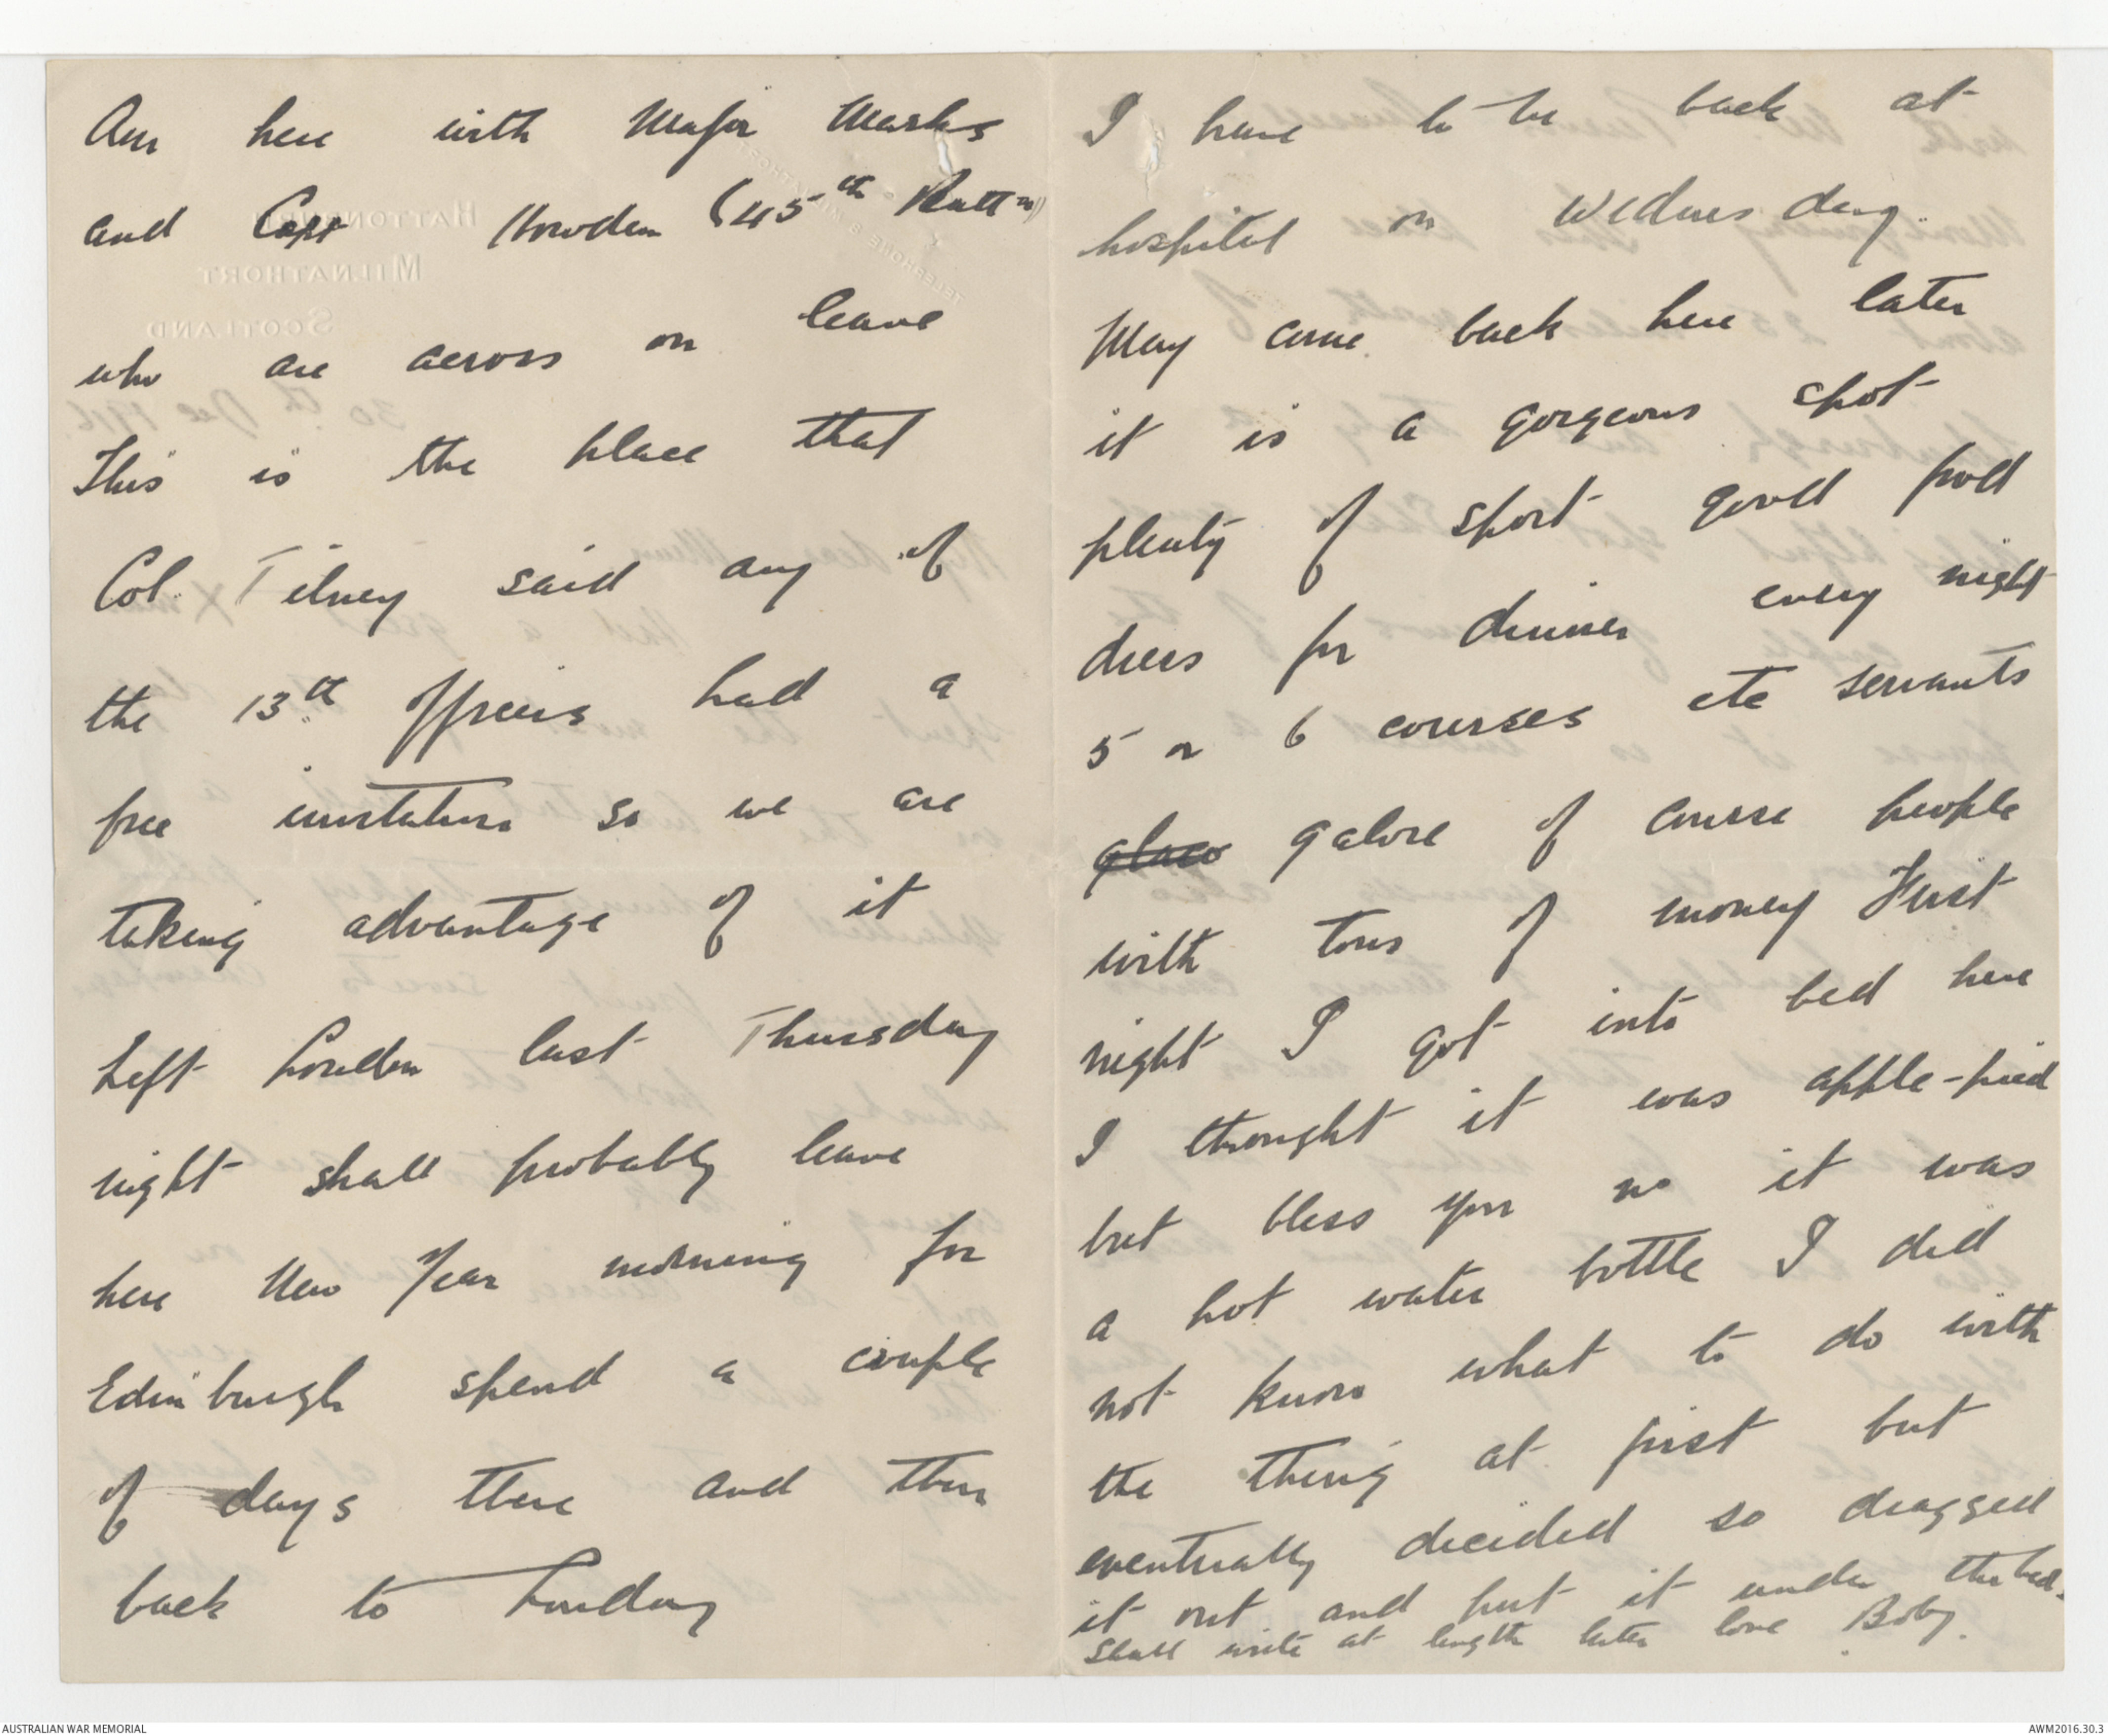 Am here with Major Marks
and Capt Howden (45th Battn)
who are across on leave
This is the place that
Col. Tilney said any of
the 13th Officers had a
free invitation so we are
taking advantage of it
Left London last Thursday
night shall probably leave
here New Year morning for
Edinburgh spend a couple
of days there and then
back to London
I have to be back at
hospital on Wednesday.
May come back here later
it is a gorgeous spot
plenty of sport good food
dress for dinner every night
5 or 6 courses etc servants
galore of course people
with tons of money First
night I got into bed here
I thought it was apple-pied
but bless you no it was
a hot water bottle I did
not know what to do with
the thing at first but
eventually decided so dragged
it out and put it under the bed.
Shall write at length later love Boby.
HATTONBURN
MILNATHORT
SCOTLAND
30th Dec 1916.
AUSTRALIAN WAR MEMORIAL
AWM2016.30.3